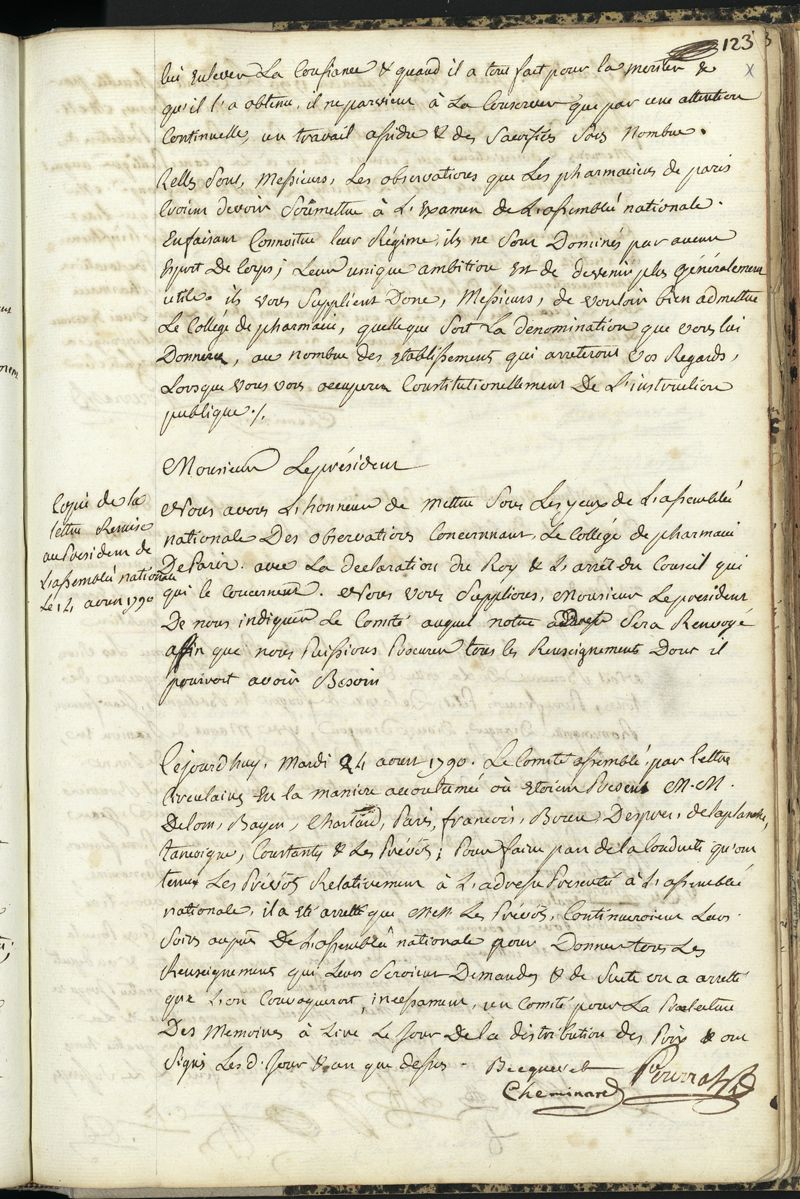 123
lui Enlever La Confiance & quand il a tout fait pour la meriter &
qu'il l'a obtenu, il ne parvient à La Conserver que par une attention
Continuelle, un travail assidu & des Sacrifices Sans Nombre.
telles Sont, Messieurs, Les observations que Les pharmaciens de paris
Croient devoir Soumettre à L'Examen de L'assemblée nationale.
En faisant Connoitre leur Régime, ils ne Sont Dominés par aucun
Esprit De Corps; Leur unique ambition Est de devenir plus généralement
utile. ils vous Supplient Donc, Messieurs, de vouloir bien admettre
Le Collége de pharmacie, quelle que Soit La denomination que vous lui
Donnerez, au nombre des Etablissements qui arreteront Vos Regards,
Lorsque Vous vous occuperez Constitutionellement De L'instruction
publique ./.
Monsieur Le président
Copie de la
lettre Remise
au President de
L'assemblée nationale
Le 14 avril 1790
Nous avons L'honneur de Mettre Sous Les yeux de L'assemblée
nationale Des observations Concernant Le Collége de pharmacie
De Paris. avec La declaration du Roy & L'arrêt du Conseil qui
qui le Concernent. Nous vous Supplions, Monsieur Le president
De nous indiquer Le Comité auquel notre adresse Sera Renvoyé
affin que nous Puissions Procurer tous les Renseignements Dont il
pourroit avoir Besoin
Cejourdhuy, Mardi 24 aoust 1790. Le Comité assemblé par lettre
Circulaire En la maniere accoutumée où Etoient Present M.M.
Delon, Bayen, Charlard, Paris, francois, Brun, Desprez, delaplanche,
tancoigne, Coustants & Les Prévôts; Pour faire part de la Conduite qu'ont
tenus Les Prévôts Relativement à L'adresse Presenté à L'assemblée
nationale, il a Eté arretté que MM Les Prévôts, Continueroient Leurs
Soins auprès De L'assemblée nationale pour Donner tous Les
Renseignements qui Leurs Seroient Demandés & de Suite on a arretté
que L'on Convoqueroit, incessament, un Comité pour La
Des Memoires à Lire Le Jour De la distribution des Prix & ont
Signés Les d. Jour & an que dessus. Becqueret
Cheminard